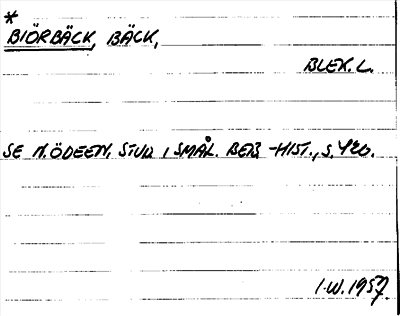 *
BIÖRBÄCK, BÄCK,
BLEK. L.
SE N. ÖDEEN, STUD. I SMÅL. BEB. -HIST., S.
I.W. 1957.